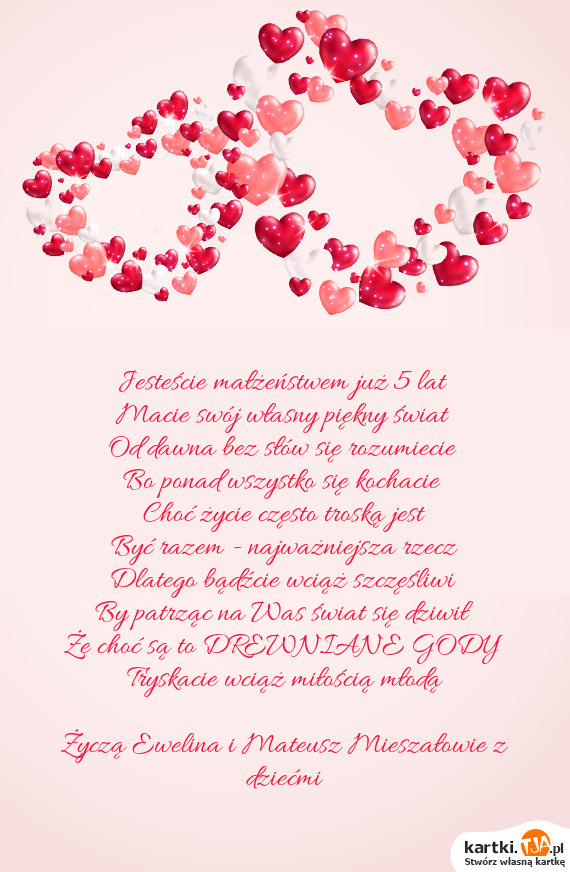 Jesteście małżeństwem już 5 lat
Macie swój własny piękny świat
Od dawna bez słów się rozumiecie
Bo ponad wszystko się kochacie
Choć życie często troską jest
Być razem - najważniejsza rzecz
Dlatego bądźcie wciąż szczęśliwi
By patrząc na Was świat się dziwił
Że choć są to DREWNIANE GODY
Tryskacie wciąż miłością młodą
Życzą Ewelina i Mateusz Mieszałowie z
dziećmi
kartki.TJA.pl
Stwórz własną kartkę